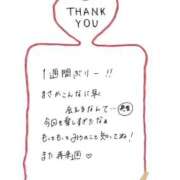 THANK
YOU
1週間ぶりー!!
まさかこんなに早く
会えるなんて…
今回も癒しすぎたなぁ
もっともっとみうのこと知ってね!
また再来週♡